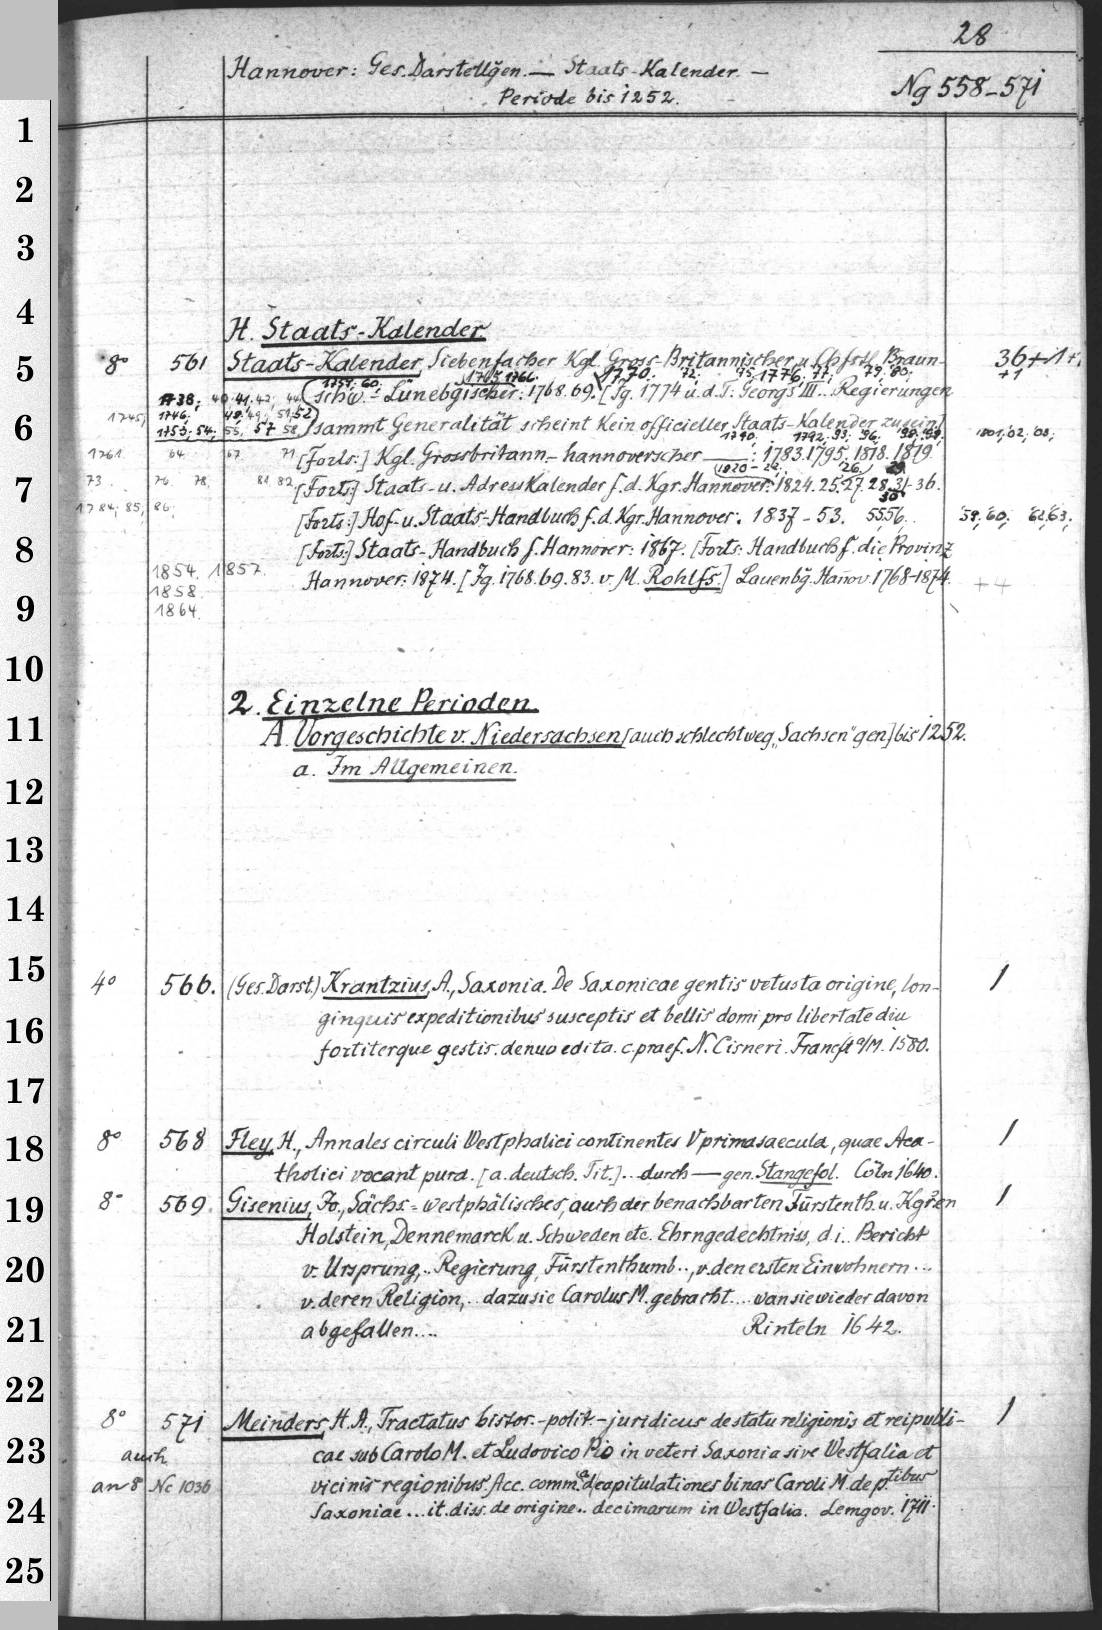 28
Hannover: Ges. Darstellgen. — Staats-Kalender. —
Ng 558-571
Periode bis 1252.
1
2
3
4
H. Staats-Kalender.
5
8° 561 Staats-Kalender, Siebenfacher Kgl. Gross-Britannischer u. Chfrstl. Braun- 36+1+1
1759. 60. 1765 1766. 1770. 72. 75. 1776. 77. 79. 80. +1
1738; 40. 41. 42. 44 schw.-Lünebgischer: 1768. 69. [Jg. 1774 u. d. T.: Georgs III... Regierungen
1745, 1746. 48. 49. 51. 52
6
1753. 54. 55. 57 58. sammt Generalität scheint kein officieller Staats-Kalender zu sein]
1790. 1792. 93. 96. 98. 99. 1801, 02, 03,
1761. 64 67 71 [Forts:] Kgl. Grossbritann-hannoverscher —: 1783. 1795. 1818. 1819
1820-22. 26. 29.
7
73. 76. 78. 81. 82. [Forts:] Staats- u. Adress Kalender f. d. Kgr. Hannover: 1824. 25. 27. 28. 31-36.
30
1784, 85, 86, [Forts:] Hof- u. Staats-Handbuch f. d. Kgr. Hannover. 1837-53. 55. 56. 59, 60, 62, 63,
8
[Forts:] Staats-Handbuch f. Hannover: 1867. [Forts: Handbuch f. die Provinz
1854. 1857. Hannover: 1874. [Jg. 1768. 69. 83. v. M. Rohlfs.] Lauenbg. Hanov. 1768-1874. ++
1858.
9
1864.
10
2. Einzelne Perioden.
11
A. Vorgeschichte v. Niedersachsen [auch schlechtweg „Sachsen" gen] bis 1252.
a. Im Allgemeinen.
12
13
14
15
4° 566. (Ges. Darst.) Krantzius, A., Saxonia. De Saxonicae gentis vetusta origine, lon- 1
ginquis expeditionibus susceptis et bellis domi pro libertate diu
16
fortiterque gestis. denuo edita. c. praef. N. Cisneri. Francft a/M. 1580.
17
18
8° 568 Fley, H., Annales circuli Westphalici continentes V prima saecula, quae Aca- 1
tholici vocant pura. [a. deutsch. Tit.] .. durch — gen. Stangefol. Cöln 1640.
19
8° 569. Gisenius, Jo., Sächs.-westphälisches, auch der benachbarten Fürstenth. u. Kgren 1
Holstein, Dennemarck u. Schweden etc. Ehrngedechtniss, d. i. Bericht
20
v. Ursprung, .. Regierung, Fürstenthumb .., v. den ersten Einwohnern ...
v. deren Religion, .. dazu sie Carolus M. gebracht .... wan sie wieder davon
21
abgefallen .... Rinteln 1642.
22
8° 571 Meinders, H. A., Tractatus histor.-polit.-juridicus de statu religionis et reipubli- 1
23
auch cae sub Carolo M. et Ludovico Pio in veteri Saxonia sive Westfalia et
an 8 Nc 1036 vicinis regionibus. Acc. comm. ad capitulationes binas Caroli M. de ptibus
24
Saxoniae ... it. diss. de origine .. decimarum in Westfalia. Lemgov. 1711.
25